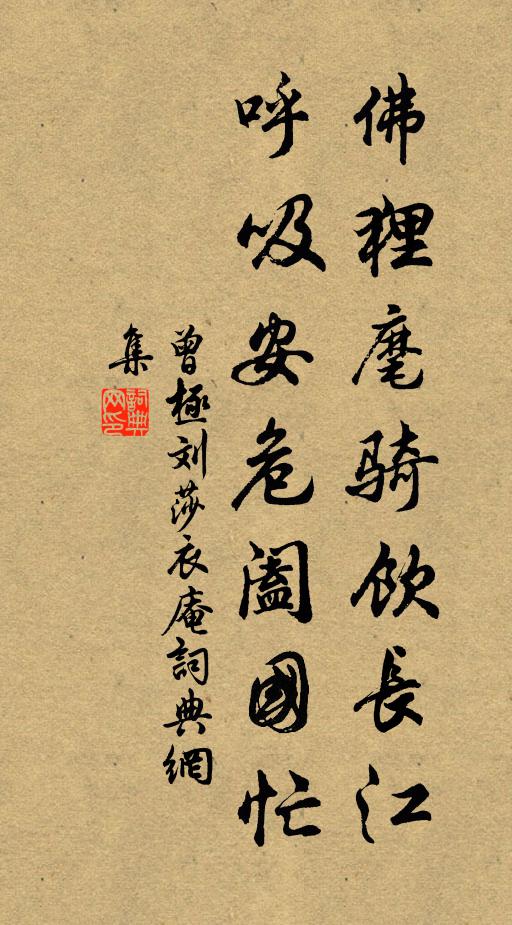 佛狸麾骑饮长江
呼吸安危阖國忙
曾極刘莎衣庵詞典網
集
詞典网印